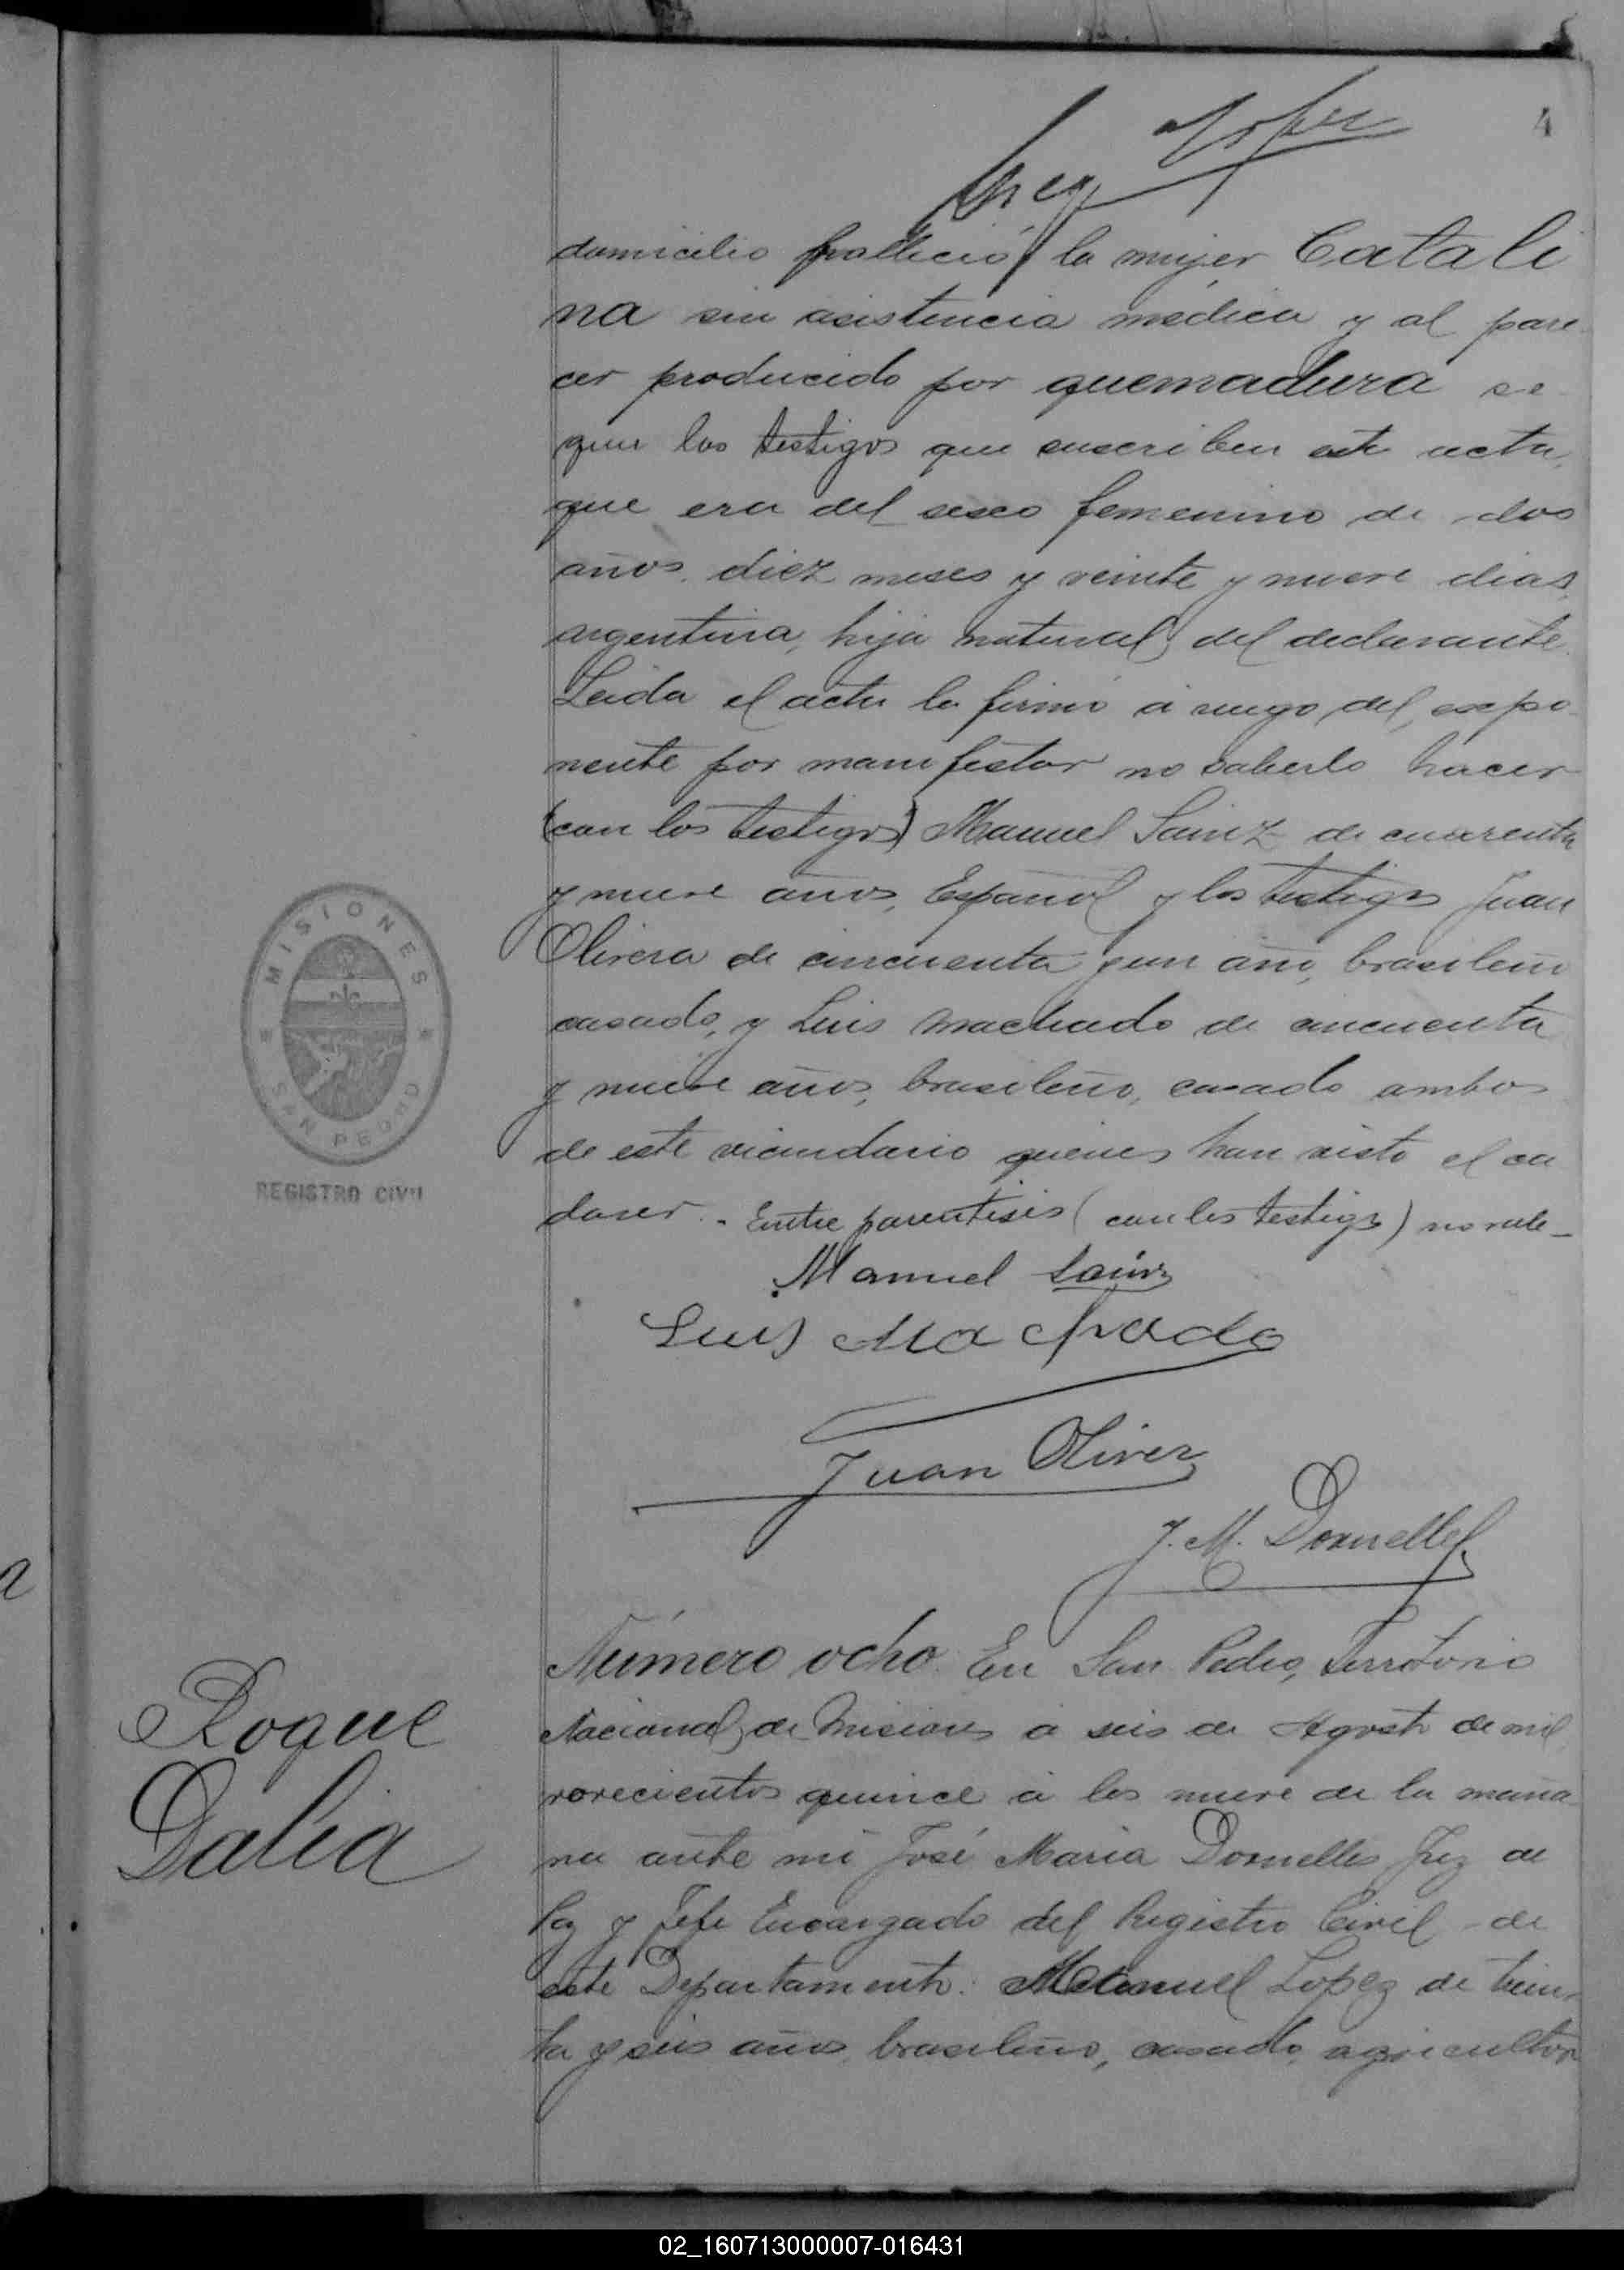 4
domicilio fallició la mujer Catali
na sin asistencia médica y al pare
cer producido por quemadura se
gun los testigos que suscriben este acta,
que era del sexo femenino de dos
años, diez meses y veinte y nueve dias,
argentina, hija natural del declarante.
Leida el acta la firmó á ruego del expo
nente por manifestar no saberlo hacer
(con los testigos) Manuel Sainz de cuarenta
y nueve años, Español y los testigos Juan
Olivera de cincuenta y un año, brasileño
casado, y Luis Machado de cincuenta
y nueve años, brasileño, casado ambos
de este vicindario quienes han visto el ca
daver. - Entre parentisis (con los testigos) no vale-
Manuel Sainz
Luis Machado
Juan Oliver
J. M. Dornelles
MISIONES
SAN PEDRO
REGISTRO CIVIL
Roque
Dalia
Número ocho. En San Pedro, Territorio
Nacional de Misiones á seis de Agosto de mil
novecientos quince á las nueve de la maña
na ante mi José Maria Dornelles Juez de
Paz y Jefe Encargado del Registro Civil de
este Departamento: Manuel Lopez de trein-
ta y seis años, brasileño, casado, agricultor
02_160713000007-016431